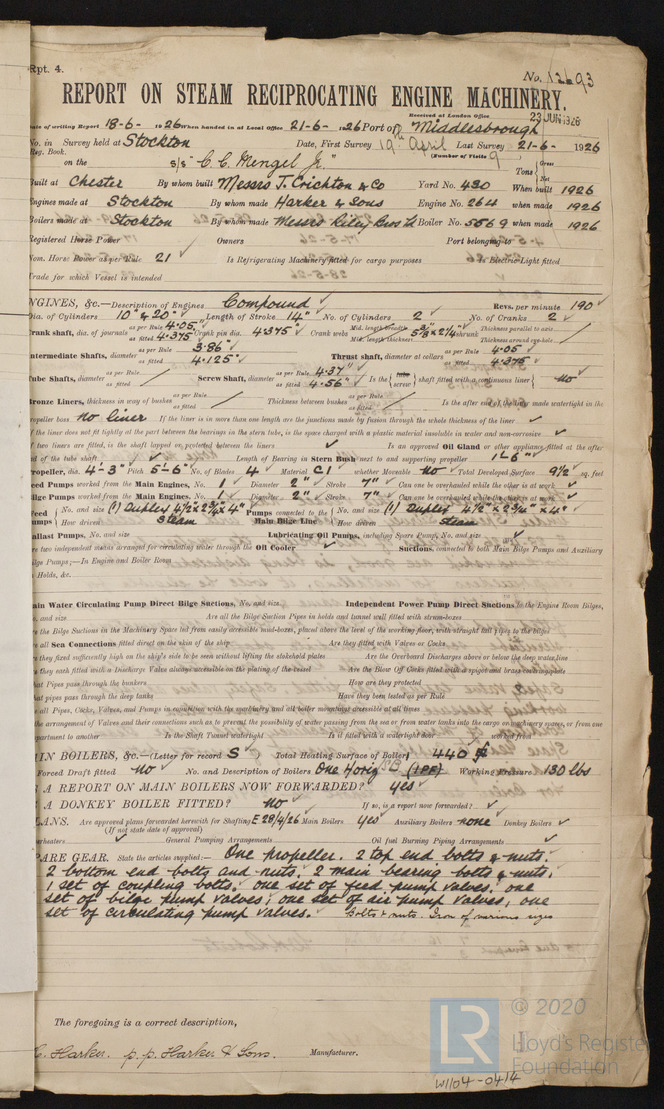 Rpt. 4.
No. 12693
REPORT ON STEAM RECIPROCATING ENGINE MACHINERY.
Received at London Office 23 JUN 1926
Date of writing Report 18-6- 1926 When handed in at Local Office 21-6- 1926 Port of Middlesbrough
No. in Survey held at Stockton Date, First Survey 19th April Last Survey 21-6- 1926
Reg. Book. (Number of Visits 9
on the S/S "C. C. Mengel Jr." Tons Gross Net
Built at Chester By whom built Messrs J. Crichton & Co Yard No. 430 When built 1926
Engines made at Stockton By whom made Harker & Sons Engine No. 264 when made 1926
Boilers made at Stockton By whom made Messrs Riley Bros Ld Boiler No. 5569 when made 1926
Registered Horse Power Owners Port belonging to
Nom. Horse Power as per Rule 21 Is Refrigerating Machinery fitted for cargo purposes Is Electric Light fitted
Trade for which Vessel is intended
ENGINES, &c.—Description of Engines Compound Revs. per minute 190
Dia. of Cylinders 10" & 20" Length of Stroke 14" No. of Cylinders 2 No. of Cranks 2
Crank shaft, dia. of journals as per Rule 4.05" as fitted 4.375 Crank pin dia. 4.375" Crank webs Mid. length breadth Mid. length thickness shrunk Thickness parallel to axis Thickness around eye-hole
Intermediate Shafts, diameter as per Rule 3.86" as fitted 4.125" Thrust shaft, diameter at collars as per Rule 4.05 as fitted 4.375
Tube Shafts, diameter as per Rule as fitted Screw Shaft, diameter as per Rule 4.37" as fitted 4.56" Is the tube screw shaft fitted with a continuous liner No
Bronze Liners, thickness in way of bushes as per Rule as fitted Thickness between bushes as per Rule as fitted Is the after end of the liner made watertight in the
propeller boss No liner If the liner is in more than one length are the junctions made by fusion through the whole thickness of the liner
If the liner does not fit tightly at the part between the bearings in the stern tube, is the space charged with a plastic material insoluble in water and non-corrosive
If two liners are fitted, is the shaft lapped or protected between the liners Is an approved Oil Gland or other appliance fitted at the after
end of the tube shaft Length of Bearing in Stern Bush next to and supporting propeller 1'-6"
Propeller, dia. 4'-3" Pitch 5'-6" No. of Blades 4 Material C I whether Moveable No Total Developed Surface 9½ sq. feet
Feed Pumps worked from the Main Engines, No. 1 Diameter 2" Stroke 7" Can one be overhauled while the other is at work
Bilge Pumps worked from the Main Engines, No. 1 Diameter 2" Stroke 7" Can one be overhauled while the other is at work
Feed Pumps No. and size (1) Duplex 4½" x 2¾" x 4" Pumps connected to the Main Bilge Line No. and size (1) Duplex 4½" x 2¾" x 4"
How driven Steam How driven Steam
Ballast Pumps, No. and size Lubricating Oil Pumps, including Spare Pump, No. and size
Are two independent means arranged for circulating water through the Oil Cooler Suctions, connected to both Main Bilge Pumps and Auxiliary
Bilge Pumps;—In Engine and Boiler Room
In Holds, &c.
Main Water Circulating Pump Direct Bilge Suctions, No. and size. Independent Power Pump Direct Suctions to the Engine Room Bilges,
No. and size. Are all the Bilge Suction Pipes in holds and tunnel well fitted with strum-boxes
Are the Bilge Suctions in the Machinery Space led from easily accessible mud-boxes, placed above the level of the working floor, with straight tail pipes to the bilges
Are all Sea Connections fitted direct on the skin of the ship Are they fitted with Valves or Cocks
Are they fixed sufficiently high on the ship's side to be seen without lifting the stokehold plates Are the Overboard Discharges above or below the deep water line
Are they each fitted with a Discharge Valve always accessible on the plating of the vessel Are the Blow Off Cocks fitted with a spigot and brass covering plate
What Pipes pass through the bunkers How are they protected
What pipes pass through the deep tanks Have they been tested as per Rule
Are all Pipes, Cocks, Valves, and Pumps in connection with the machinery and all boiler mountings accessible at all times
Is the arrangement of Valves and their connections such as to prevent the possibility of water passing from the sea or from water tanks into the cargo or machinery spaces, or from one
compartment to another Is the Shaft Tunnel watertight Is it fitted with a watertight door worked from
MAIN BOILERS, &c.—(Letter for record S ) Total Heating Surface of Boilers 440
Forced Draft fitted No No. and Description of Boilers One Horizl SB (1 P F) Working Pressure 130 lbs
IS A REPORT ON MAIN BOILERS NOW FORWARDED? Yes
IS A DONKEY BOILER FITTED? No If so, is a report now forwarded?
PLANS. Are approved plans forwarded herewith for Shafting E 28/4/26 Main Boilers Yes Auxiliary Boilers None Donkey Boilers
(If not state date of approval)
Superheaters General Pumping Arrangements Oil fuel Burning Piping Arrangements
SPARE GEAR. State the articles supplied:— One propeller. 2 top end bolts & nuts.
2 bottom end bolts and nuts. 2 main bearing bolts & nuts,
1 set of coupling bolts. one set of feed pump valves, one
set of bilge pump valves, one set of air pump valves, one
set of circulating pump valves. Bolts & nuts. Iron of various sizes
The foregoing is a correct description,
C. Harker. p.p. Harker & Sons. Manufacturer.
LR
© 2020
Lloyd's Register
Foundation
W1104-0414